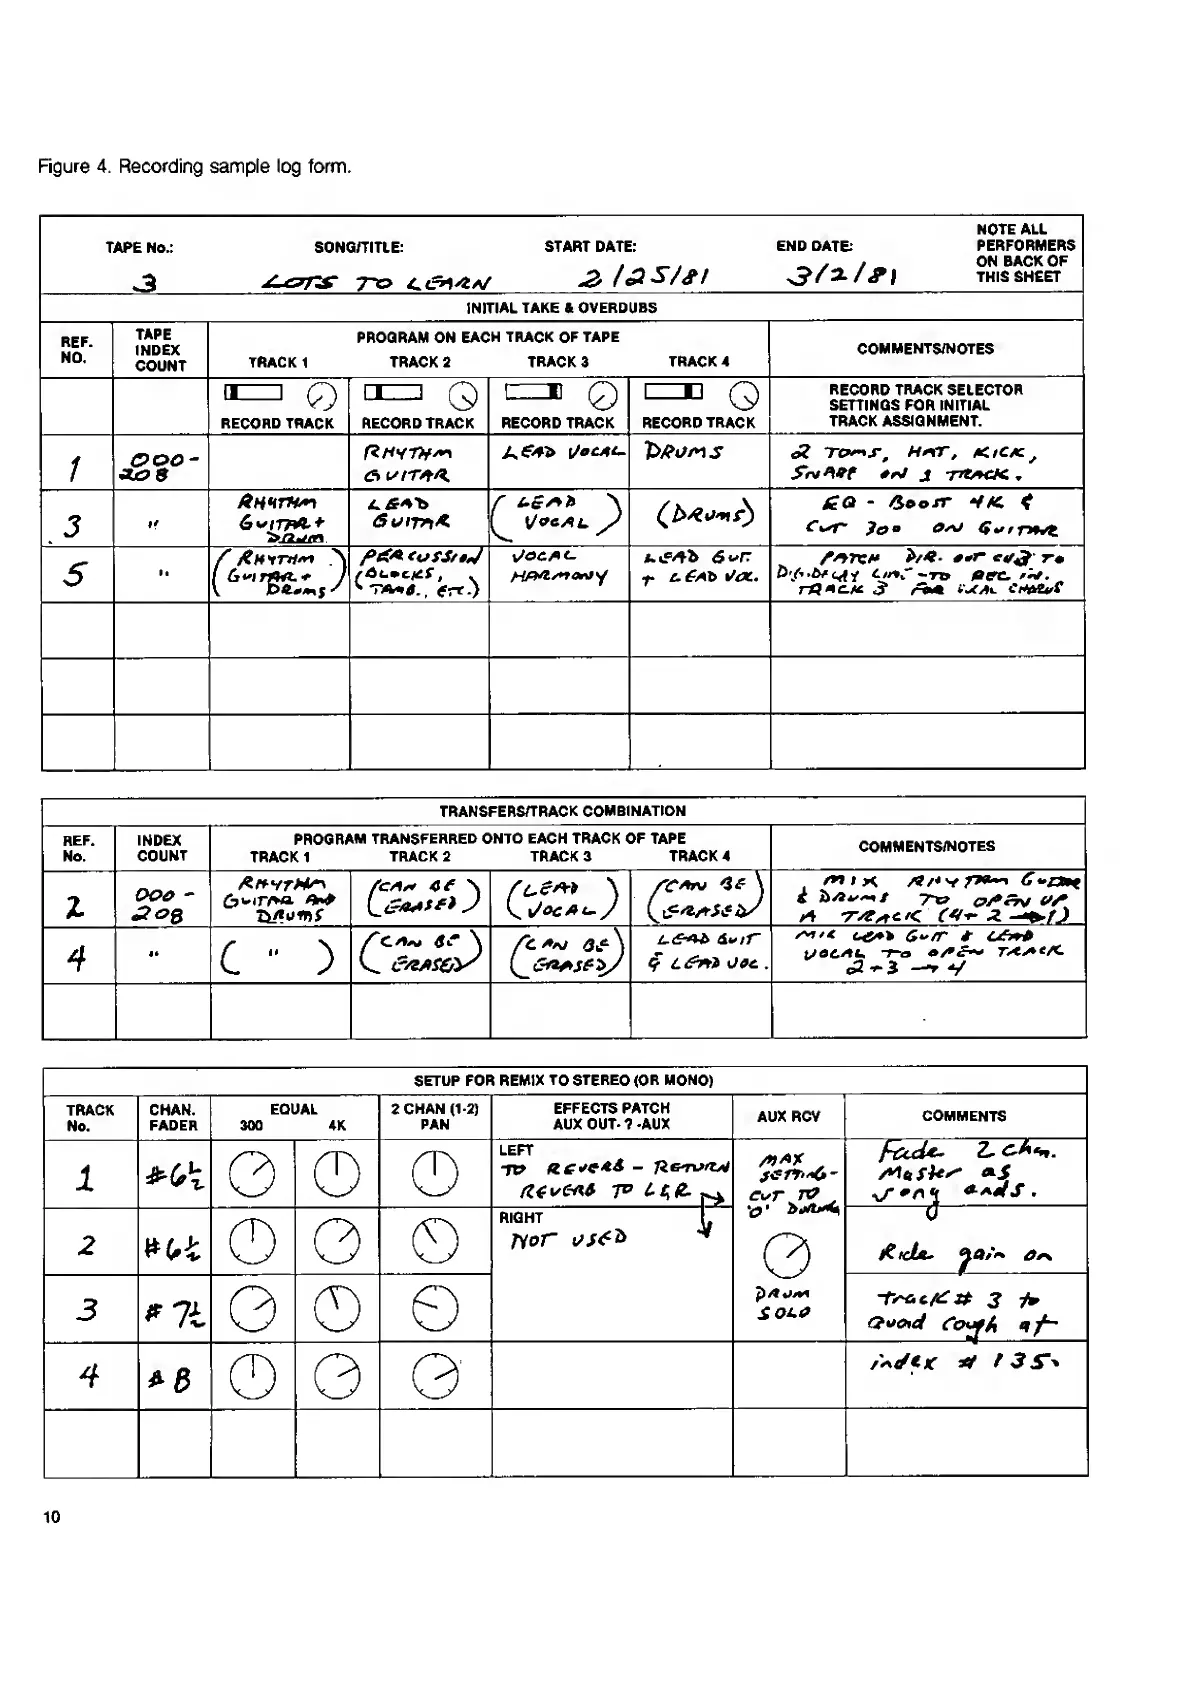 Figure 4. Recording sample log form.
TAPE No.: SONG/TITLE: START DATE: END DATE: NOTE ALL
PERFORMERS
ON BACK OF
THIS SHEET
3 LOTS TO LEARN 2/25/81 3/2/81
INITIAL TAKE & OVERDUBS
REF.
NO.
TAPE
INDEX
COUNT
PROGRAM ON EACH TRACK OF TAPE
TRACK 1 TRACK 2 TRACK 3 TRACK 4
COMMENTS/NOTES
RECORD TRACK RECORD TRACK RECORD TRACK RECORD TRACK
RECORD TRACK SELECTOR
SETTINGS FOR INITIAL
TRACK ASSIGNMENT.
1
000-
208
RHYTHM
GUITAR
LEAD VOCAL
DRUMS
2 TOMS, HAT, KICK,
SNARE ON 1 TRACK.
3
"
RHYTHM
GUITAR +
DRUM
LEAD
GUITAR
(LEAD
VOCAL)
(DRUMS)
EQ - BOOST 4K &
CUT 300 ON GUITAR
5
"
(RHYTHM
GUITAR +
DRUMS)
PERCUSSION
(BLOCKS,
TAMB., ETC.)
VOCAL
HARMONY
LEAD GUT.
+ LEAD VOC.
PATCH DIR. OUT CH3 TO
TO REC IN.
TRACK 3 FOR CHORUS
TRANSFERS/TRACK COMBINATION
REF.
No.
INDEX
COUNT
PROGRAM TRANSFERRED ONTO EACH TRACK OF TAPE
TRACK 1 TRACK 2 TRACK 3 TRACK 4
COMMENTS/NOTES
2
000 -
208
RHYTHM
GUITAR AND
DRUMS
(CAN BE
ERASED)
(LEAD
VOCAL)
(CAN BE
ERASED)
MIX RHYTHM GUITAR
& DRUMS TO OPEN UP
A TRACK (4+2→1)
4
"
( " )
(CAN BE
ERASED)
(CAN BE
ERASED)
LEAD GUIT
& LEAD VOC.
MIX LEAD GUIT & LEAD
VOCAL TO OPEN TRACK
2+3 → 4
SETUP FOR REMIX TO STEREO (OR MONO)
TRACK
No.
CHAN.
FADER
EQUAL
300 4K
2 CHAN (1-2)
PAN
EFFECTS PATCH
AUX OUT- ? -AUX
AUX RCV
COMMENTS
1
#6½
LEFT
TO REVERB - RETURN
REVERB TO L&R
MAX
SETTING -
CUT TO
'0' DURING
Fade 2 chn.
Master as
song ends.
2
#6½
RIGHT
NOT USED
Ride gain on
3
#7½
DRUM
SOLO
track # 3 to
avoid cough at
4
#8
index # 135.
10